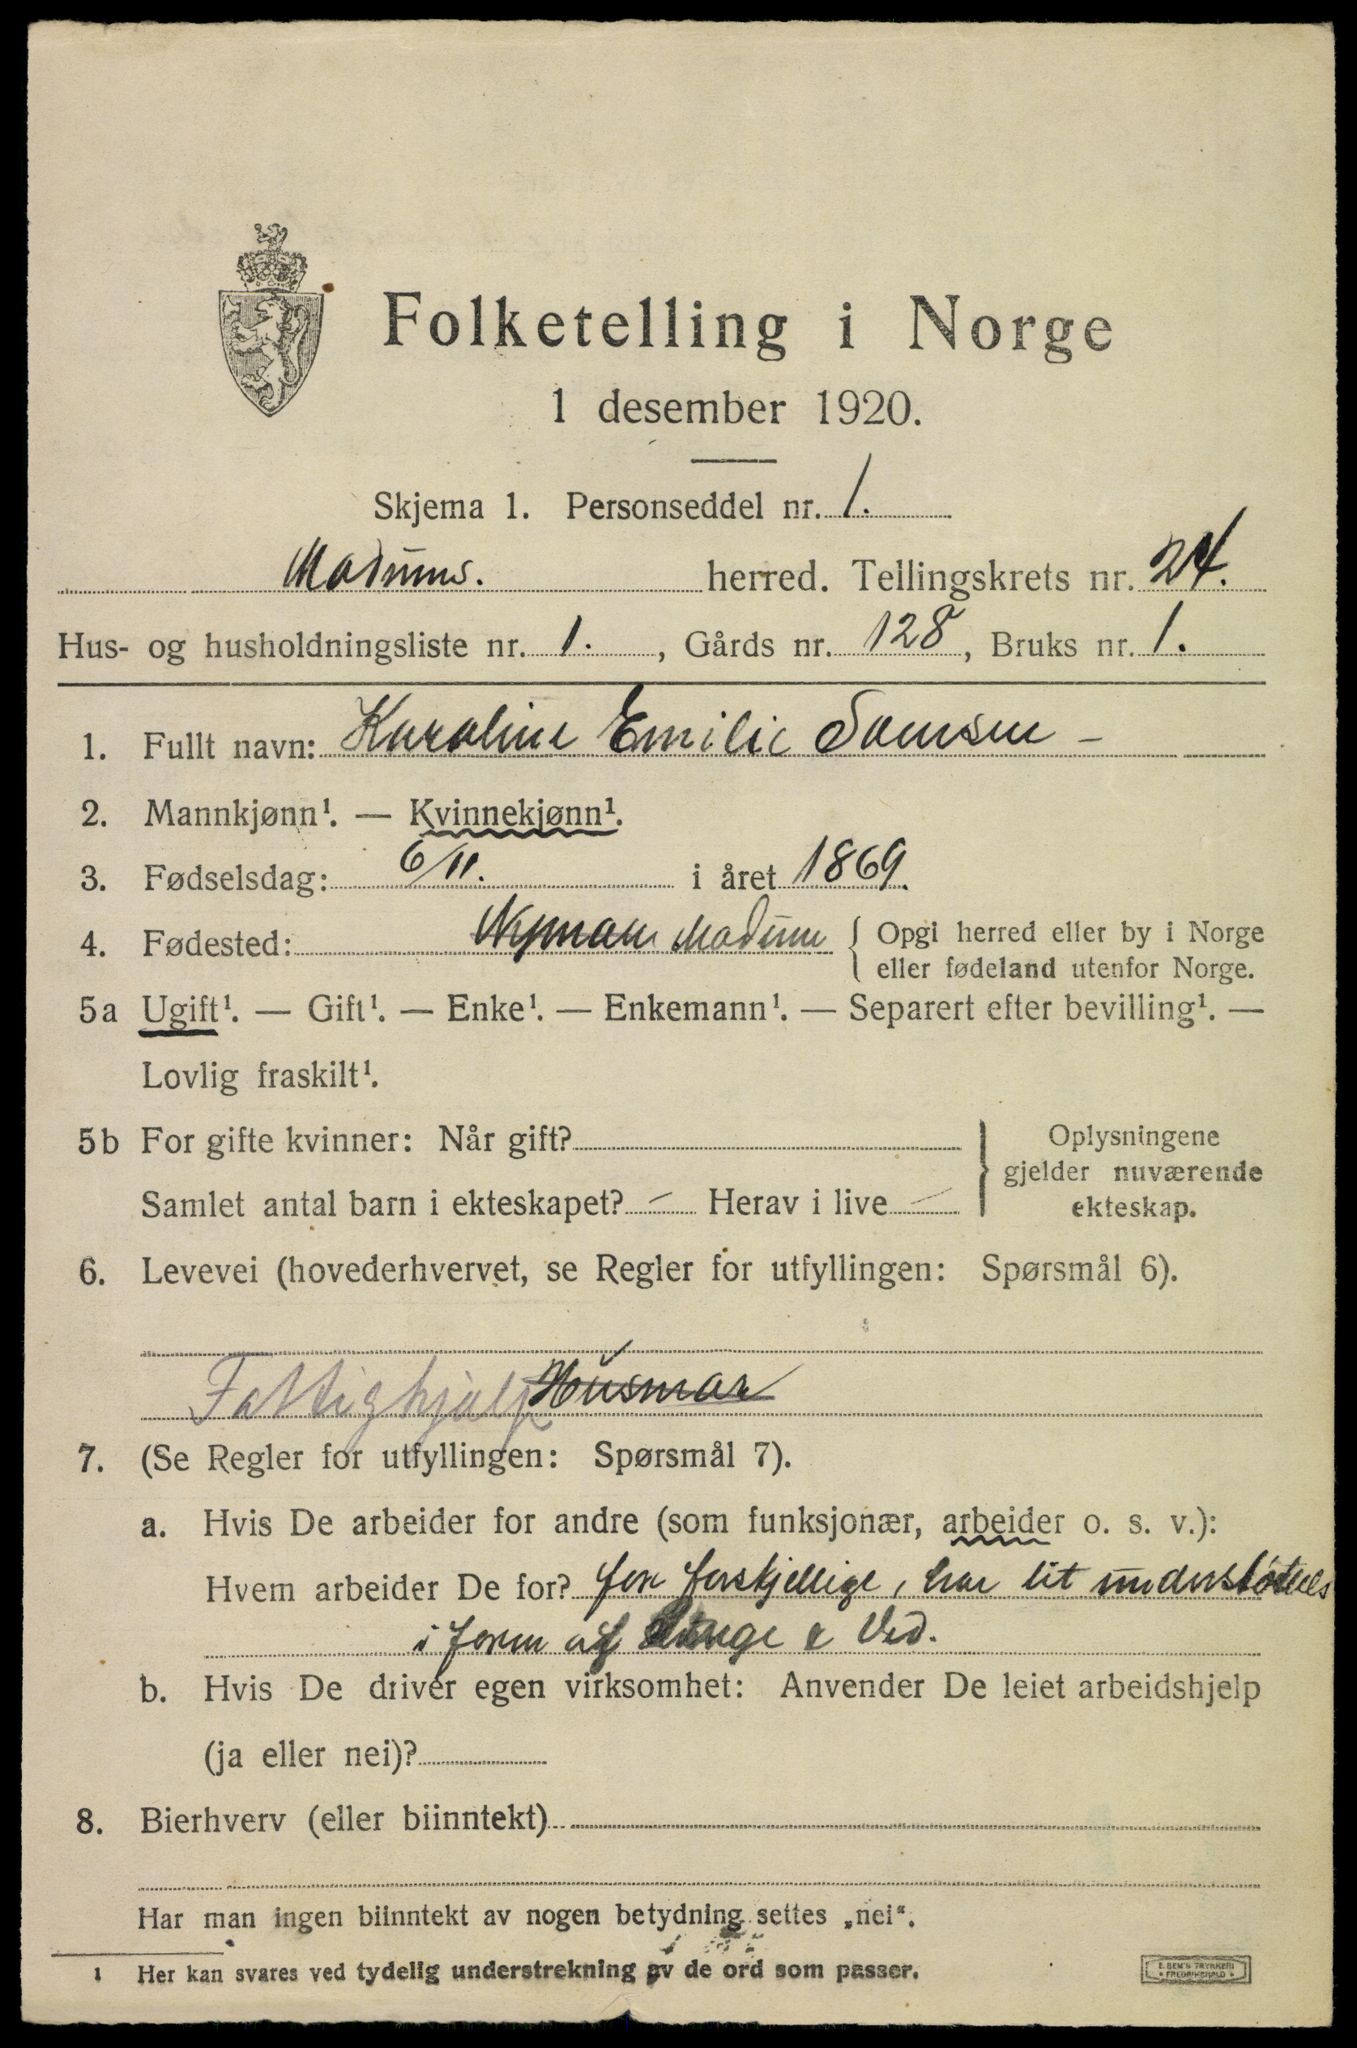 Folketelling i Norge
1 desember 1920.
Skjema 1. Personseddel nr. 1.
Modums. herred. Tellingskrets nr. 24.
Hus- og husholdningsliste nr. 1. , Gårds nr. 128, Bruks nr. 1.
1. Fullt navn: Karoline Emilie
2. Mannkjønn¹. — Kvinnekjønn¹.
3. Fødselsdag: 6/11. i året 1869.
4. Fødested: Modum { Opgi herred eller by i Norge
eller fødeland utenfor Norge.
5a Ugift¹. — Gift¹. — Enke¹. — Enkemann¹. — Separert efter bevilling¹. —
Lovlig fraskilt¹.
5b For gifte kvinner: Når gift?
Samlet antal barn i ekteskapet? — Herav i live —
Oplysningene
gjelder nuværende
ekteskap.
6. Levevei (hovederhvervet, se Regler for utfyllingen: Spørsmål 6).
Fattighjælp Husmor
7. (Se Regler for utfyllingen: Spørsmål 7).
a. Hvis De arbeider for andre (som funksjonær, arbeider o. s. v.):
Hvem arbeider De for? for forskjellige, har lit understøttels
i form af & Ved.
b. Hvis De driver egen virksomhet: Anvender De leiet arbeidshjelp
(ja eller nei)?
8. Bierhverv (eller biinntekt)
Har man ingen biinntekt av nogen betydning settes „nei“.
¹ Her kan svares ved tydelig understrekning av de ord som passer.
E. SEM'S TRYKKERI
FREDRIKSHALD